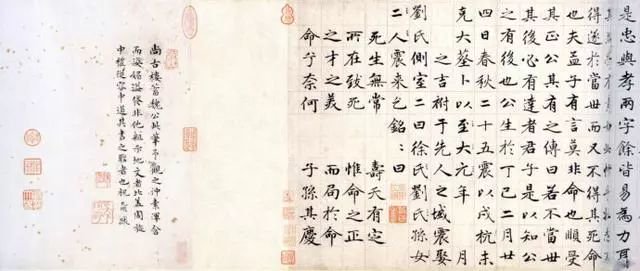 是忠與孝兩字餘皆易為力耳
得遂於當世而又不得其死命
也夫孟子有言莫非命也順受
其正公其有之傳曰若不當世
其後必有達者君子是以知公
之有後也公生於丁巳二月廿
四日春秋二十五震以戌杭未
克大葬卜以至大元年 月
之吉祔于先人之域震娶
劉氏側室二曰徐氏劉氏孫女
二人震來乞銘：曰
死生無常 壽夭有定
所在致死 惟命之正
之才之美 而局於命
命兮奈何 子孫其慶
尚古樓蓄魏公此筆予觀之沖素渾含
而姿韻溢發非他粗示地文者比
中禮從容中道其書之聖者也祝